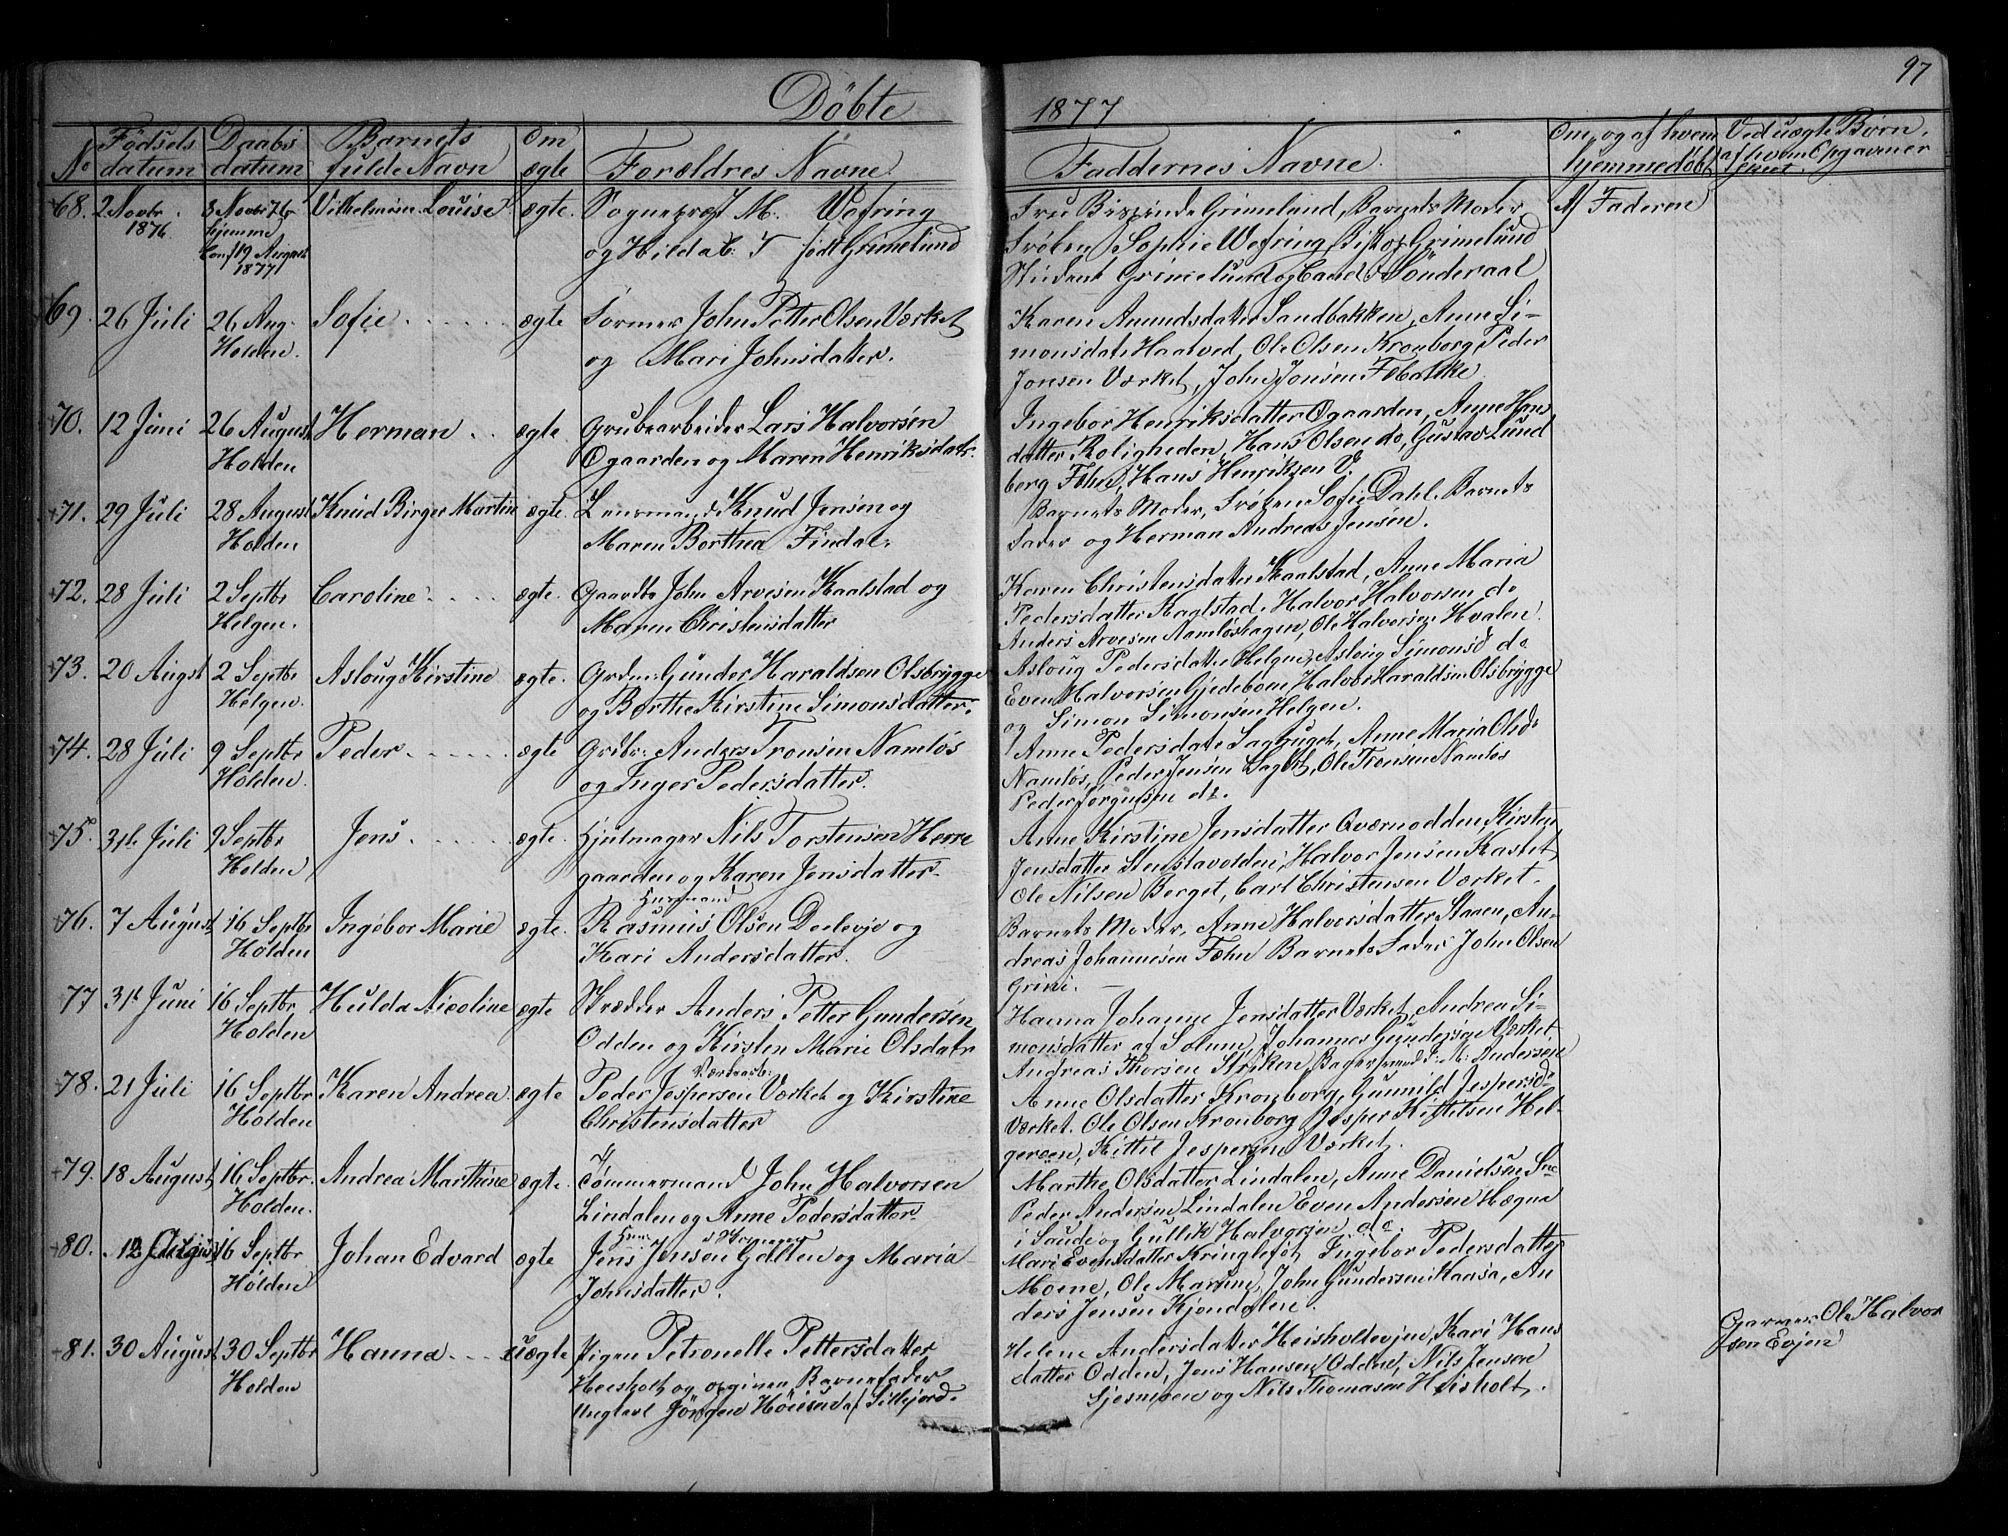 97
Döbte
1877
No
Födsels datum
Daabs datum
Barnets fulde Navn
Om ægte
Forældres Navne.
Faddernes Navne.
Om, og af hvem hjemmedøbt
Ved uægte Børn, af hvem Opgaven er skeet.
68. 2 Novbr 1876
8 Novbr 76
hjemme
Conf 19 August
1877
Vilhelmine Louise
ægte.
Sogneprest M. Wefring
og Hilda B. T født Grimelund
Fru Grimelund, Barnets Moder
Frøken Sophie Wefring Biskop Grimelund
Student Grimelund og Cand Sönderaal
Af Faderne
69. 26 Juli
26 Aug.
Holden.
Sofie
ægte
Former John Petter Olsen Værket
og Mari Johnsdatter.
Karen Amundsdatter Sandbakken, Anne Si-
monsdatr Haatved, Ole Olsen Kronborg, Peder
Jonsen Værket, John Jonsen
70. 12 Juni
26 August
Holden
Herman
ægte.
Grubearbeider Lars Halvorsen
Ogaarden og Maren Henriksdatr.
Ingebor Henriksdatter Ogaarden, Anne Hans
datter Roligheden, Hans Olsen do, Gustav Lund
berg Fæhn, Hans Henriksen V.
71. 29 Juli
28 August
Holden
Knud Birger Martin
ægte.
Lensmand Knud Jensen og
Maren Borthea Findal.
Barnets Moder, Frøken Sofie Dahl. Barnets
Fader og Herman Andreas Jensen.
72. 28 Juli
2 Septbr
Helgen.
Caroline
ægte.
Gaardbr John Arvesen Kaalstad og
Maren Christensdatter
Karen Christensdatter Kaalstad, Anne Maria
Pedersdatter Kaalstad. Halvor Halvorsen do
Anders Arvesen Namløshagen, Ole Halvorsen Hvalen.
73. 20 Augst
2 Septbr
Helgen.
Asloug Kirstine
ægte.
Grdm: Gunder Haraldsen Olsbrygge
og Borthe Kirstine Simonsdatter.
Asloug Pedersdatter Helgen, Asloug Simonsd do
Even Halvorsen Gjedeboen, Halvor Haraldsen Olsbrygge
og Simon Simonsen Helgen.
74. 28 Juli
9 Septbr
Holden.
Peder
ægte
Grdbr: Anders Tronsen Namløs
og Inger Pedersdatter.
Anne Pedersdatr Sagbruget, Anne Maria Olsdr
Namløs, Peder Jensen Sagbr, Ole Tronsen Namløs
Peder Jørgensen do.
75. 31te Juli
9 Septbr
Holden
Jens
ægte.
Hjulmager Nils Torstensen Herre
gaarden og Karen Jensdatter
Anne Kirstine Jensdatter Qværnodden, Kirsten
Jensdatter Stenstavolden, Halvor Jensen Kastet
Ole Nilsen Berget, Carl Christensen Værket.
76. 7 August
16 Septbr
Holden
Ingebor Marie
ægte.
Husmand
Rasmus Olsen Deelevje og
Kari Andersdatter.
Barnets Moder, Anne Halvorsdatter Staren, An-
dreas Johannesen Fæhn Barnets Fader John Olsen
Grini.
77 31t Juni
16 Septbr
Holden
Hulda Nicoline
ægte
Skrædder Anders Petter Gundersen
Odden og Kirsten Marie Olsdatr
Hanna Johanne Jensdatter Værket, Andrea Si-
monsdatter af Solum, Johannes Gundersen Værket,
Andreas Thorsen Stoken, Bagersvend P. M. Andersen
78. 21 Juli
16 Septbr
Holden
Karen Andrea
ægte
Værksarb:
Peder Jespersen Værket og Kirstine
Christensdatter
Anne Olsdatter Kronborg, Gunild Jespersd.
Værket. Ole Olsen Kronborg Jesper Kittilsen Hel-
geroen, Kittil Jespersen Værket.
79. 18 August
16 Septbr.
Holden.
Andrea Marthine
ægte.
Tömmermand John Halvorsen
Lindalen og Anne Pedersdatter
Marthe Olsdatter Lindalen, Anne Danielsen
Peder Andersen Lindalen Even Andersen Hægna
i Saude og Gullik Halvorsen do.
80. 12 August
16 Septbr
Holden
Johan Edvard
ægte
Jens Jensen Galten og Maria
Johnsdatter.
Mari Evensdatter Kringlefot, Ingebor Pedersdatter
Moene, Ole Martinsen, John Gundersen Kaasa, An
ders Jensen Kjendalen.
81. 30 August
30 Septbr
Holden
Hanna
uægte
Pigen Petronelle Pettersdatter
Heisholt og opgiven Barnefader
Ungkarl Jörgen Höiesen af Sillejord.
Helene Andersdatter Heisholtevjen, Kari Hans
datter Odden, Jens Hansen Odden, Nils Jensen
Gjesmoen og Nils Thomasen Heisholt.
Garver Ole Halvor
sen Evjen